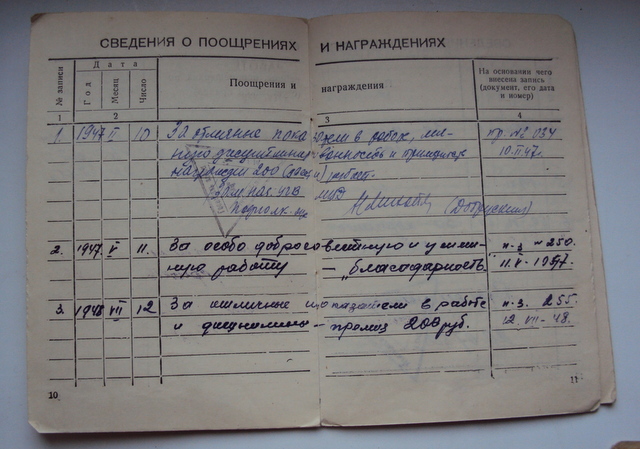 СВЕДЕНИЯ О ПООЩРЕНИЯХ И НАГРАЖДЕНИЯХ
№ записи
Дата
Год
Месяц
Число
Поощрения и награждения
На основании чего внесена запись (документ, его дата и номер)
1 2 3 4
1. 1947 II 10 За отличные показ в работе, пр. № 034
10.II.47г.
200 (двести) рублей.
МВД
Подполк.
2. 1947. V 11. За особо добросовестную и п-з № 250.
работу – „благодарность. 11.V-1947.
3. 1948 VII 12 За отличные показатели в работе п-з. 255.
и дисциплины – премия 200 руб. 12. VII-48.
10 11